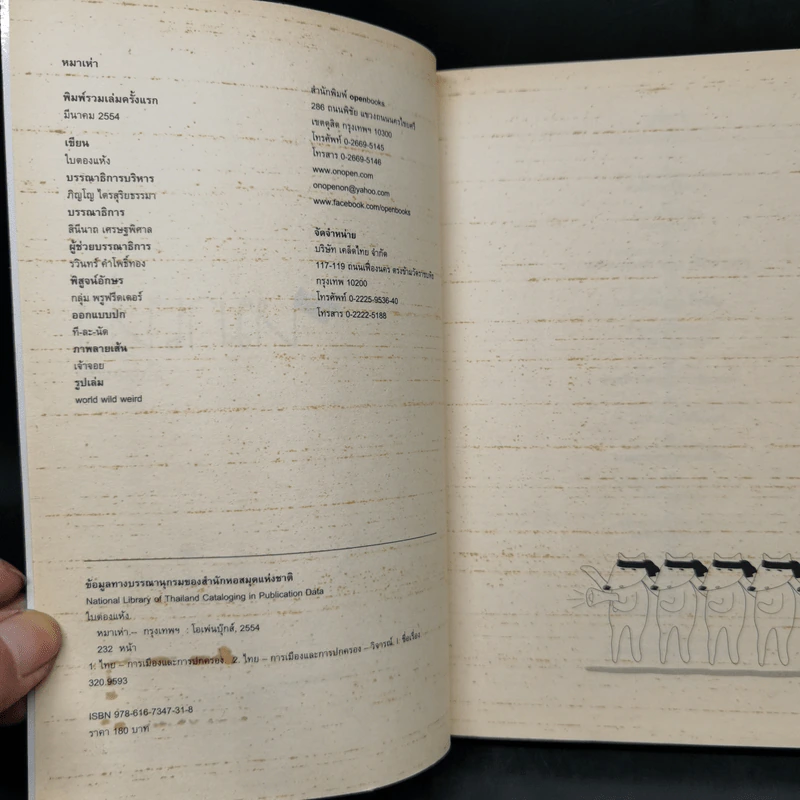 หมาเห่า
พิมพ์รวมเล่มครั้งแรก
มีนาคม 2554
เขียน
ใบตองแห้ง
บรรณาธิการบริหาร
ภิญโญ ไตรสุริยธรรมา
บรรณาธิการ
สินีนาถ เศรษฐพิศาล
ผู้ช่วยบรรณาธิการ
รวินทร์ คำโพธิ์ทอง
พิสูจน์อักษร
กลุ่ม พรูฟรีดเดอร์
ออกแบบปก
ที-ละ-นัด
ภาพลายเส้น
เจ้าจอย
รูปเล่ม
world wild weird
สำนักพิมพ์ openbooks
286 ถนนพิชัย แขวงถนนนครไชยศรี
เขตดุสิต กรุงเทพฯ 10300
โทรศัพท์ 0-2669-5145
โทรสาร 0-2669-5146
www.onopen.com
onopenon@yahoo.com
www.facebook.com/openbooks
จัดจำหน่าย
บริษัท เคล็ดไทย จำกัด
117-119 ถนนเฟื่องนคร ตรงข้ามวัดราชบพิธ
กรุงเทพ 10200
โทรศัพท์ 0-2225-9536-40
โทรสาร 0-2222-5188
ข้อมูลทางบรรณานุกรมของสำนักหอสมุดแห่งชาติ
National Library of Thailand Cataloging in Publication Data
ใบตองแห้ง.
หมาเห่า.-- กรุงเทพฯ : โอเพ่นบุ๊กส์, 2554
232 หน้า
1. ไทย -- การเมืองและการปกครอง 2. ไทย -- การเมืองและการปกครอง -- วิจารณ์. I. ชื่อเรื่อง.
320.9593
ISBN 978-616-7347-31-8
ราคา 180 บาท